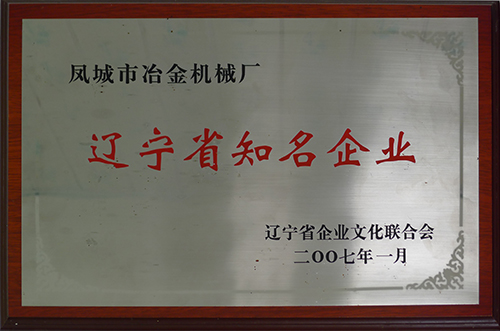 凤城市冶金机械厂
辽宁省知名企业
辽宁省企业文化联合会
二〇〇七年一月